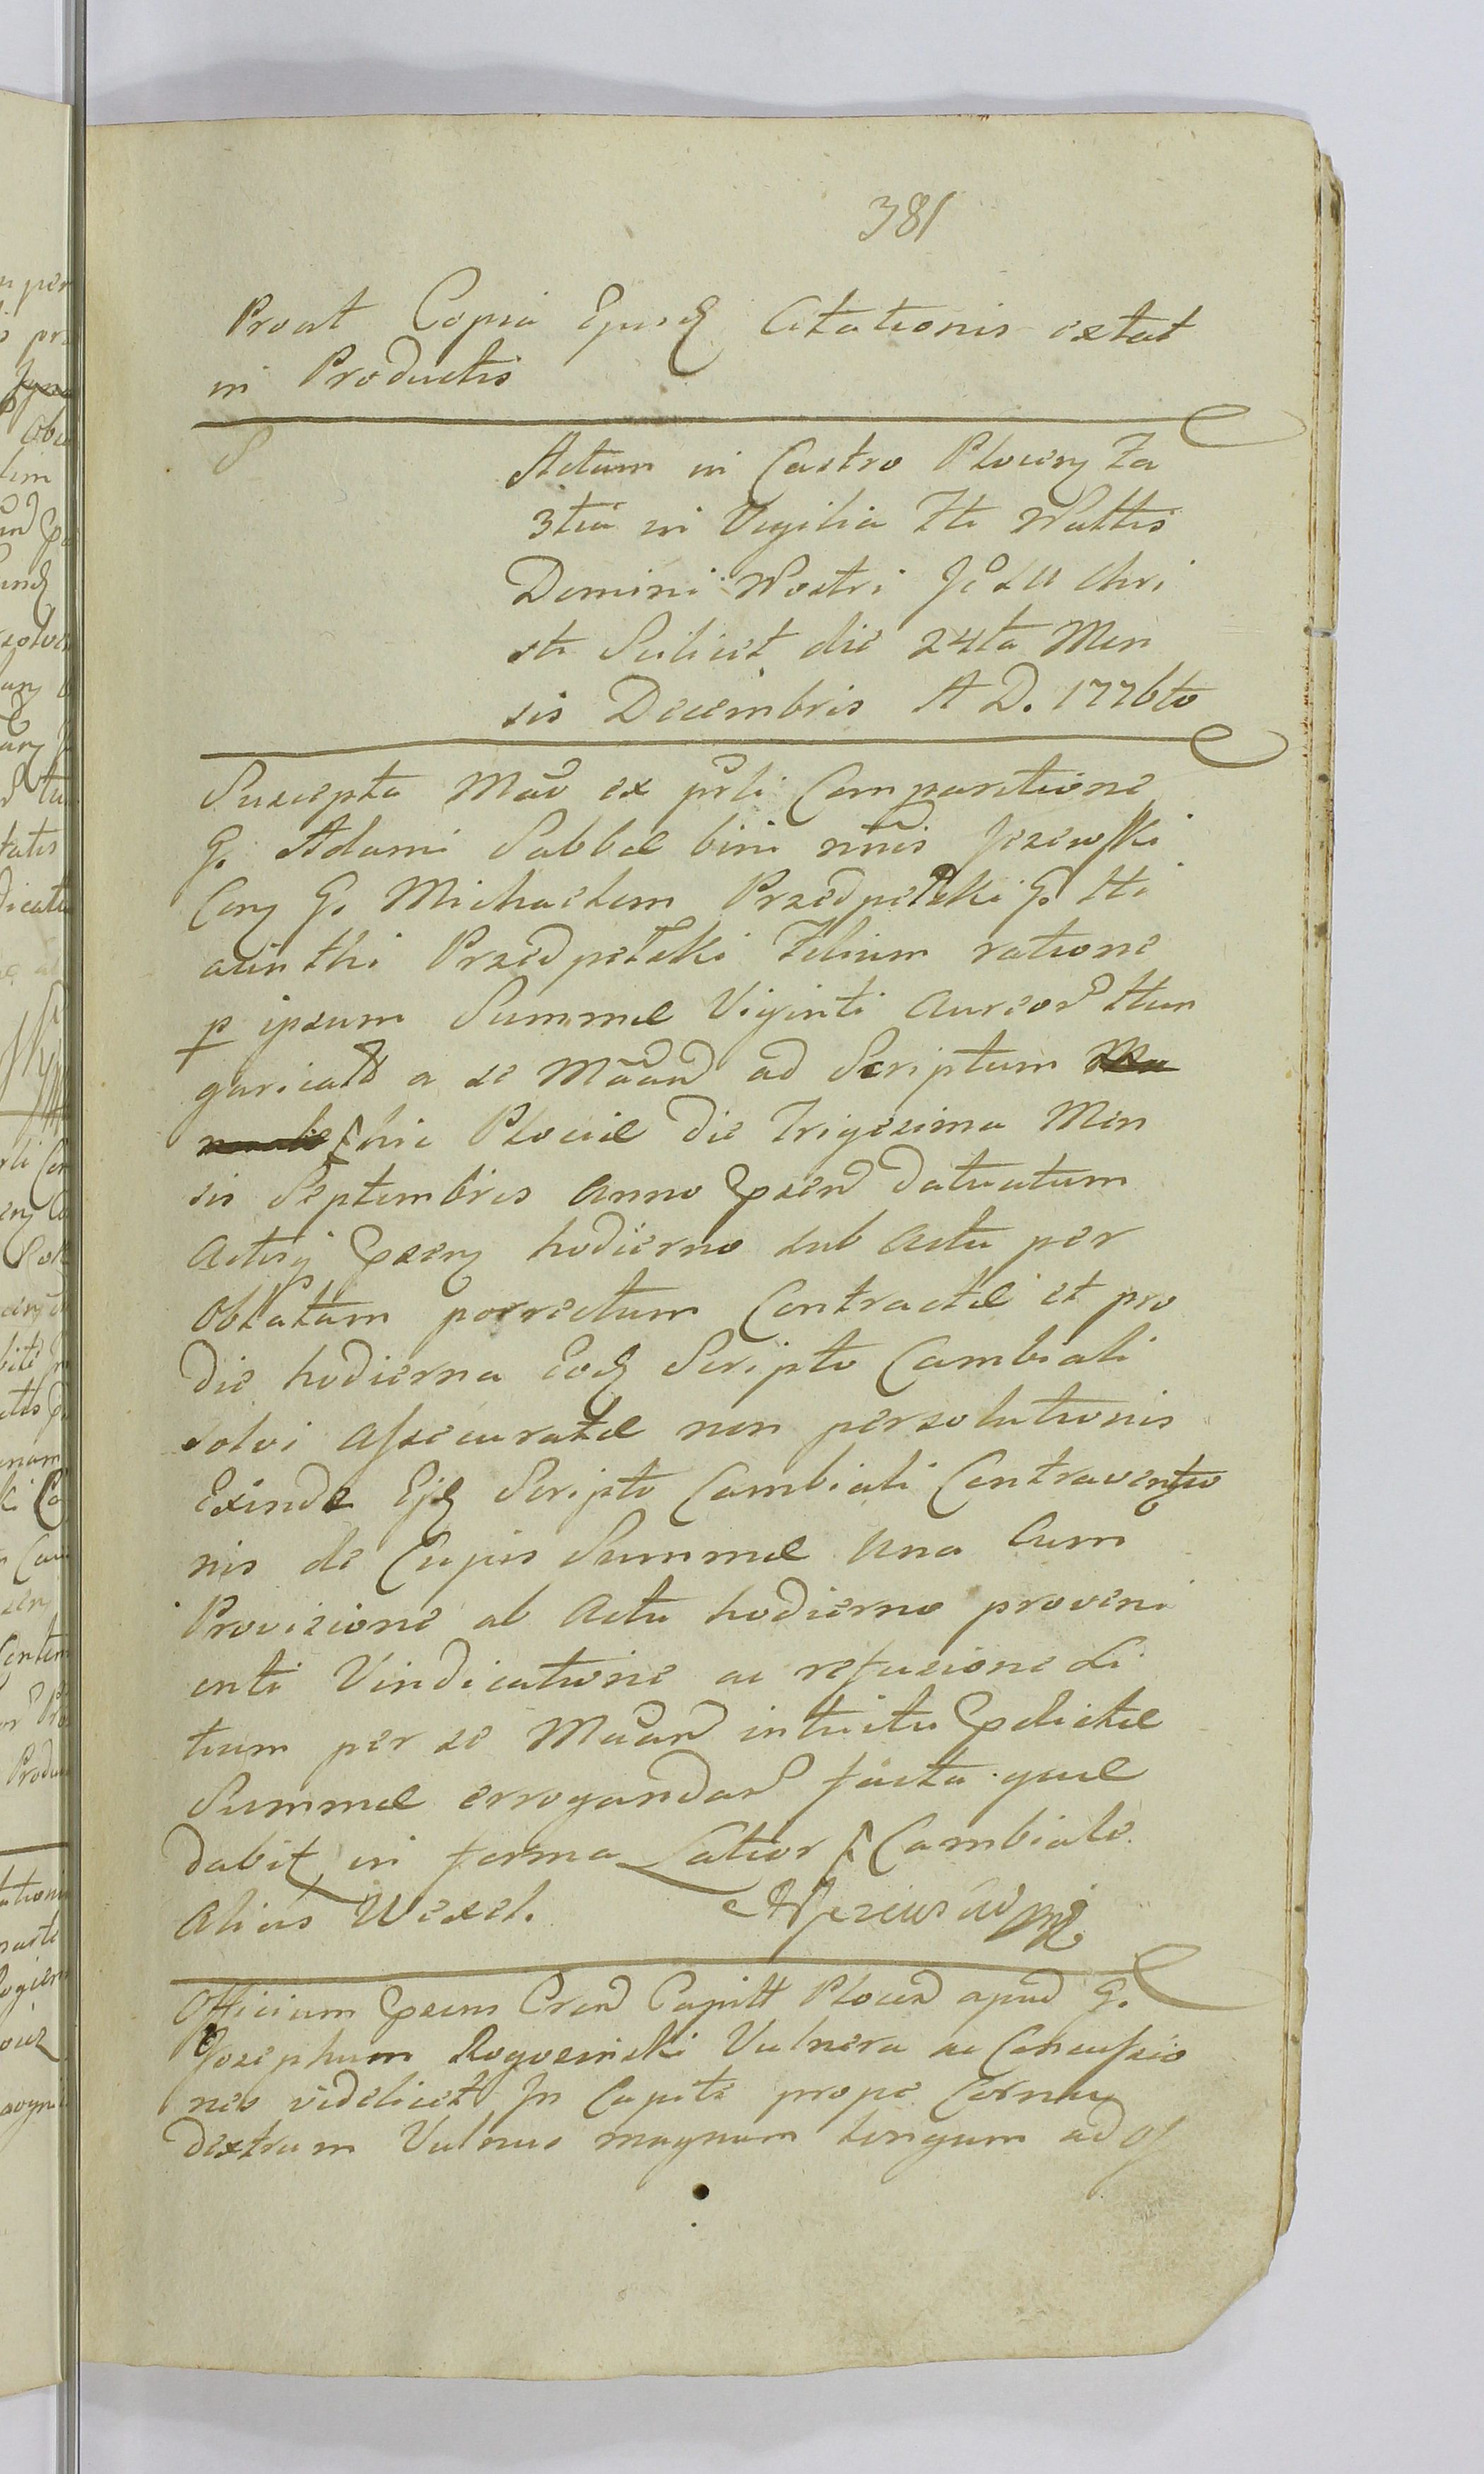 381
Proat Copia Ejusd Citationis extat
in Productis
Actum in Castro Plocen Fa
3tia in Vigilia Sti Nattis
Domini Nostri Jesu Chri
sti Scilicet die 24ta Men
sis Decembris A D. 1776to
Suscepta Mao ex prli Comparitione
G. Adami Sabbae bini nnis Jezewski
Con G. Michaelem Przedpelski G. Hi
acinthi Przedpelski Filium ratione
p ipsum Summae Viginti Aureor Hun
garical a se Maand ad Scriptum
hic Plociae die Trigesima Men
sis Septembris Anno Psend datuatum
Actisq Psen hodierno sub Actu per
Oblatam porrectum Contractae et pro
die hodierna Eod Scripto Cambiali
solvi assecuratae non persolutionis
Exinde Ejd Scripto Cambiali Contraventio
nis de Cujus Summae una Cum
Provisione ab Actu hodierno proveni
enti Vindicatione ac refusione Li
tium per se Maand intuitu Pdictae
Summae errogandar facta quae
dabit in forma Latior Cambiale
alias Wexel.
Officium Psens Cren Capitt Plocen apud G.
Josephum Rogozinski Vulnera ac Concussio
nes videlicet In Capite prope Cornu
dextrum Vulnus magnum longum ad